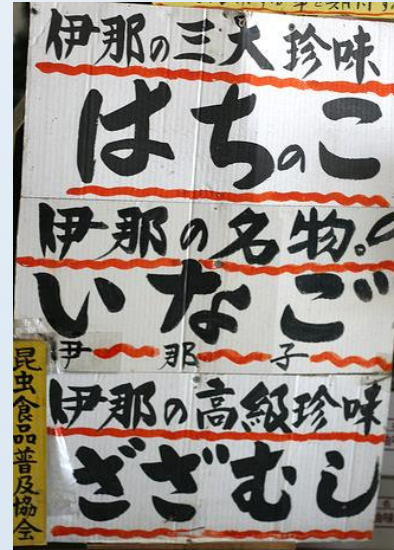 伊那の三大珍味
はちのこ
伊那の名物。
いなご
伊那子
伊那の高級珍味
ざざむし
昆虫食品普及協会